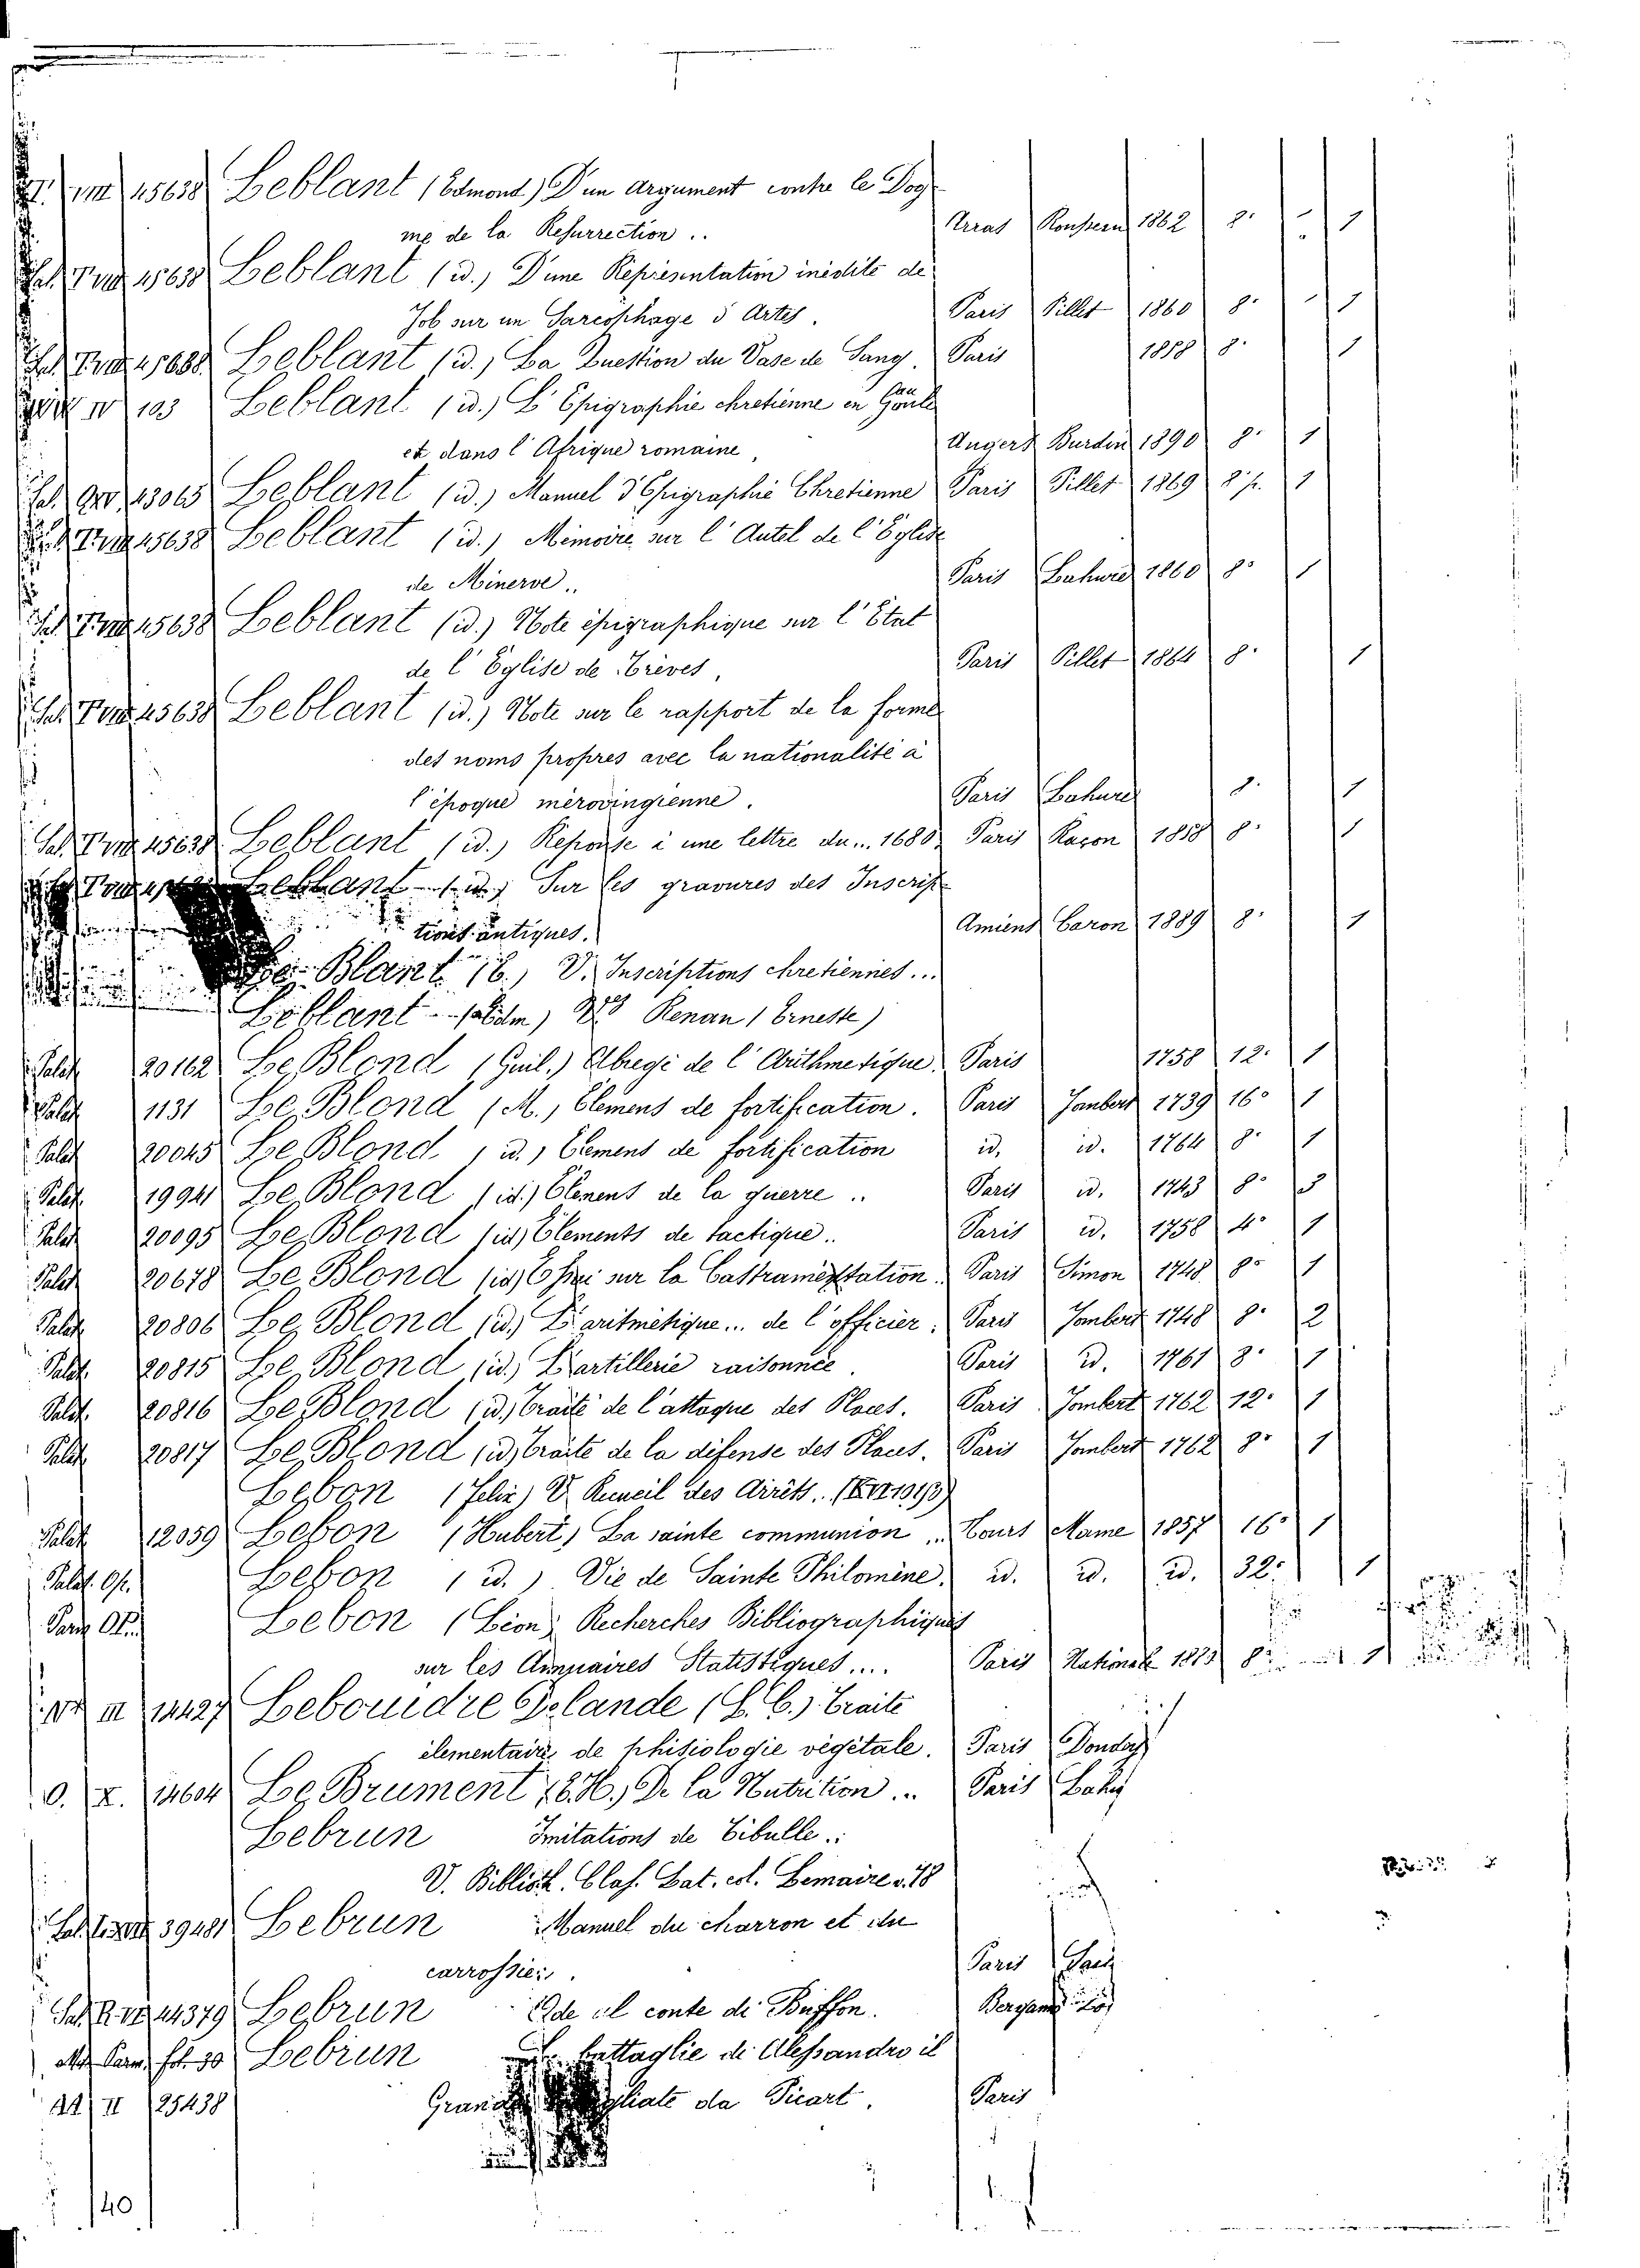 VIII 15638 Leblant (Edmond) D'un argument contre le Dog
me de la Resurrection .. Arras 1862 8º 1
15638 Leblant (id.) D'une Représentation inédite de
Job sur un Sarcophage d'Arles. Paris Pillet 1860 8º 1
15638 Leblant (id.) La Question du Vase de Sang. Paris 1858 8º 1
IV 103 Leblant (id.) L'Epigraphie chretienne en Gaule
et dans l'Afrique romaine, Angers Burdin 1890 8º 1
13065 Leblant (id.) Manuel d'Epigraphie Chretienne Paris Pillet 1869 8º p. 1
15638 Leblant (id.) Mémoire sur l'Autel de l'Eglise
de Minerve.. Paris Lahure 1860 8º 1
15638 Leblant (id.) Note épigraphique sur l'Etat
de l'Eglise de Trèves, Paris Pillet 1864 8º 1
15638 Leblant (id.) Note sur le rapport de la forme
des noms propres avec la nationalité à
l'époque mérovingienne. Paris Lahure 8º 1
15638 Leblant (id.) Reponse à une lettre du... 1680. Paris Raçon 1858 8º 1
Leblant (id.) Sur les gravures des Inscrip
tions antiques. Amiens Caron 1889 8º 1
Le Blant (E.) V. Inscriptions chretiennes...
Leblant V. Renan (Erneste)
Palat. 20162 Le Blond (Guil.) Abregé de l'Arithmetique. Paris 1758 12º 1
Palat. 1131 Le Blond (M.) Elemens de fortification. Paris Jombert 1739 16º 1
Palat. 20045 Le Blond (id.) Element de fortification id. id. 1764 8º 1
Palat. 19941 Le Blond (id.) Element de la guerre .. Paris id. 1743 8º 3
Palat. 20095 Le Blond (id.) Elements de tactique.. Paris id. 1758 4º 1
Palat. 20678 Le Blond (id.) Essai sur la Castramestation. Paris Simon 1748 8º 1
Palat. 20806 Le Blond (id.) L'aritmétique... de l'officier. Paris Jombert 1748 8º 2
Palat. 20815 Le Blond (id.) L'artillerie raisonnée. Paris id. 1761 8º 1
Palat. 20816 Le Blond (id.) Traité de l'attaque des Places. Paris Jombert 1762 12º 1
Palat. 20817 Le Blond (id.) Traité de la défense des Places. Paris Jombert 1762 8º 1
Lebon (Felix) V. Recueil des Arrêts..
Palat. 12059 Lebon (Hubert) La sainte communion.. Tours Mame 1857 16º 1
Palat. Op. Lebon (id.) Vie de Sainte Philomène. id. id. id. 32º 1
Parm. Op. Lebon (Léon) Recherches Bibliographiques
sur les Annuaires Statistiques.... Paris Nationale 1883 8º 1
III 14427 Lebouidre Delande (L. C.) Traite
élementaire de phisiologie végétale. Paris
O. X. 14604 Le Brument (E.H.) De la Nutrition .. Paris
Lebrun Imitations de Tibulle.:
V. Biblioth. Clas. Lat. col. Lemaire v. 78
Lebrun Manuel du charron et du
carrossier. Paris
14379 Lebrun Ode al conte di Buffon.
fol. 30 Lebrun battaglie di Alessandro il
II 25438 da Picart. Paris
140